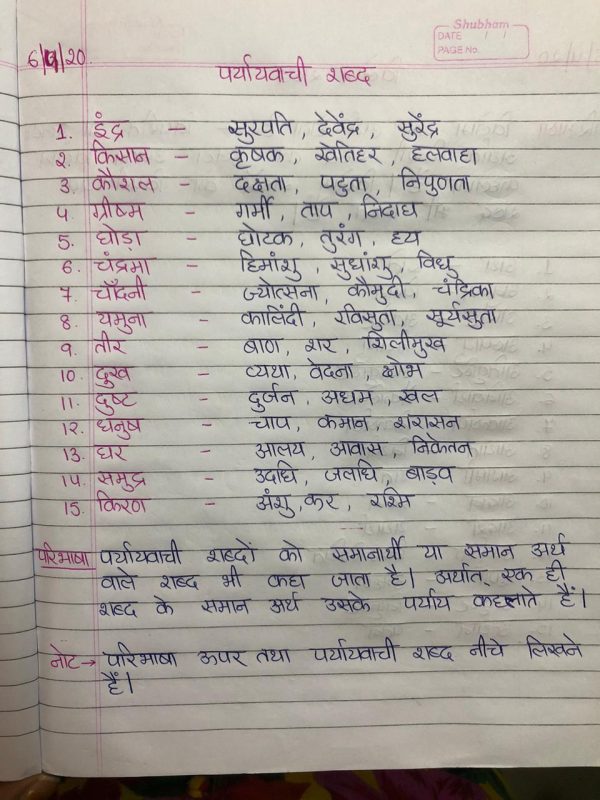 Shubham
DATE / /
PAGE No.
6/9/20.
पर्यायवाची शब्द
1. इंद्र — सुरपति, देवेंद्र, सुरेंद्र
2. किसान — कृषक, खेतिहर, हलवाहा
3. कौशल — दक्षता, पटुता, निपुणता
4. ग्रीष्म — गर्मी, ताप, निदाघ
5. घोड़ा — घोटक, तुरंग, हय
6. चंद्रमा — हिमांशु, सुधांशु, विधु
7. चाँदनी — ज्योत्सना, कौमुदी, चंद्रिका
8. यमुना — कालिंदी, रविसुता, सूर्यसुता
9. तीर — बाण, शर, शिलीमुख
10. दुख — व्यथा, वेदना, क्षोभ
11. दुष्ट — दुर्जन, अधम, खल
12. धनुष — चाप, कमान, शरासन
13. घर — आलय, आवास, निकेतन
14. समुद्र — उदधि, जलधि, बाड़व
15. किरण — अंशु, कर, रश्मि
परिभाषा पर्यायवाची शब्दों को समानार्थी या समान अर्थ
वाले शब्द भी कहा जाता है। अर्थात् एक ही
शब्द के समान अर्थ उसके पर्याय कहलाते हैं।
नोट → परिभाषा ऊपर तथा पर्यायवाची शब्द नीचे लिखने
हैं।